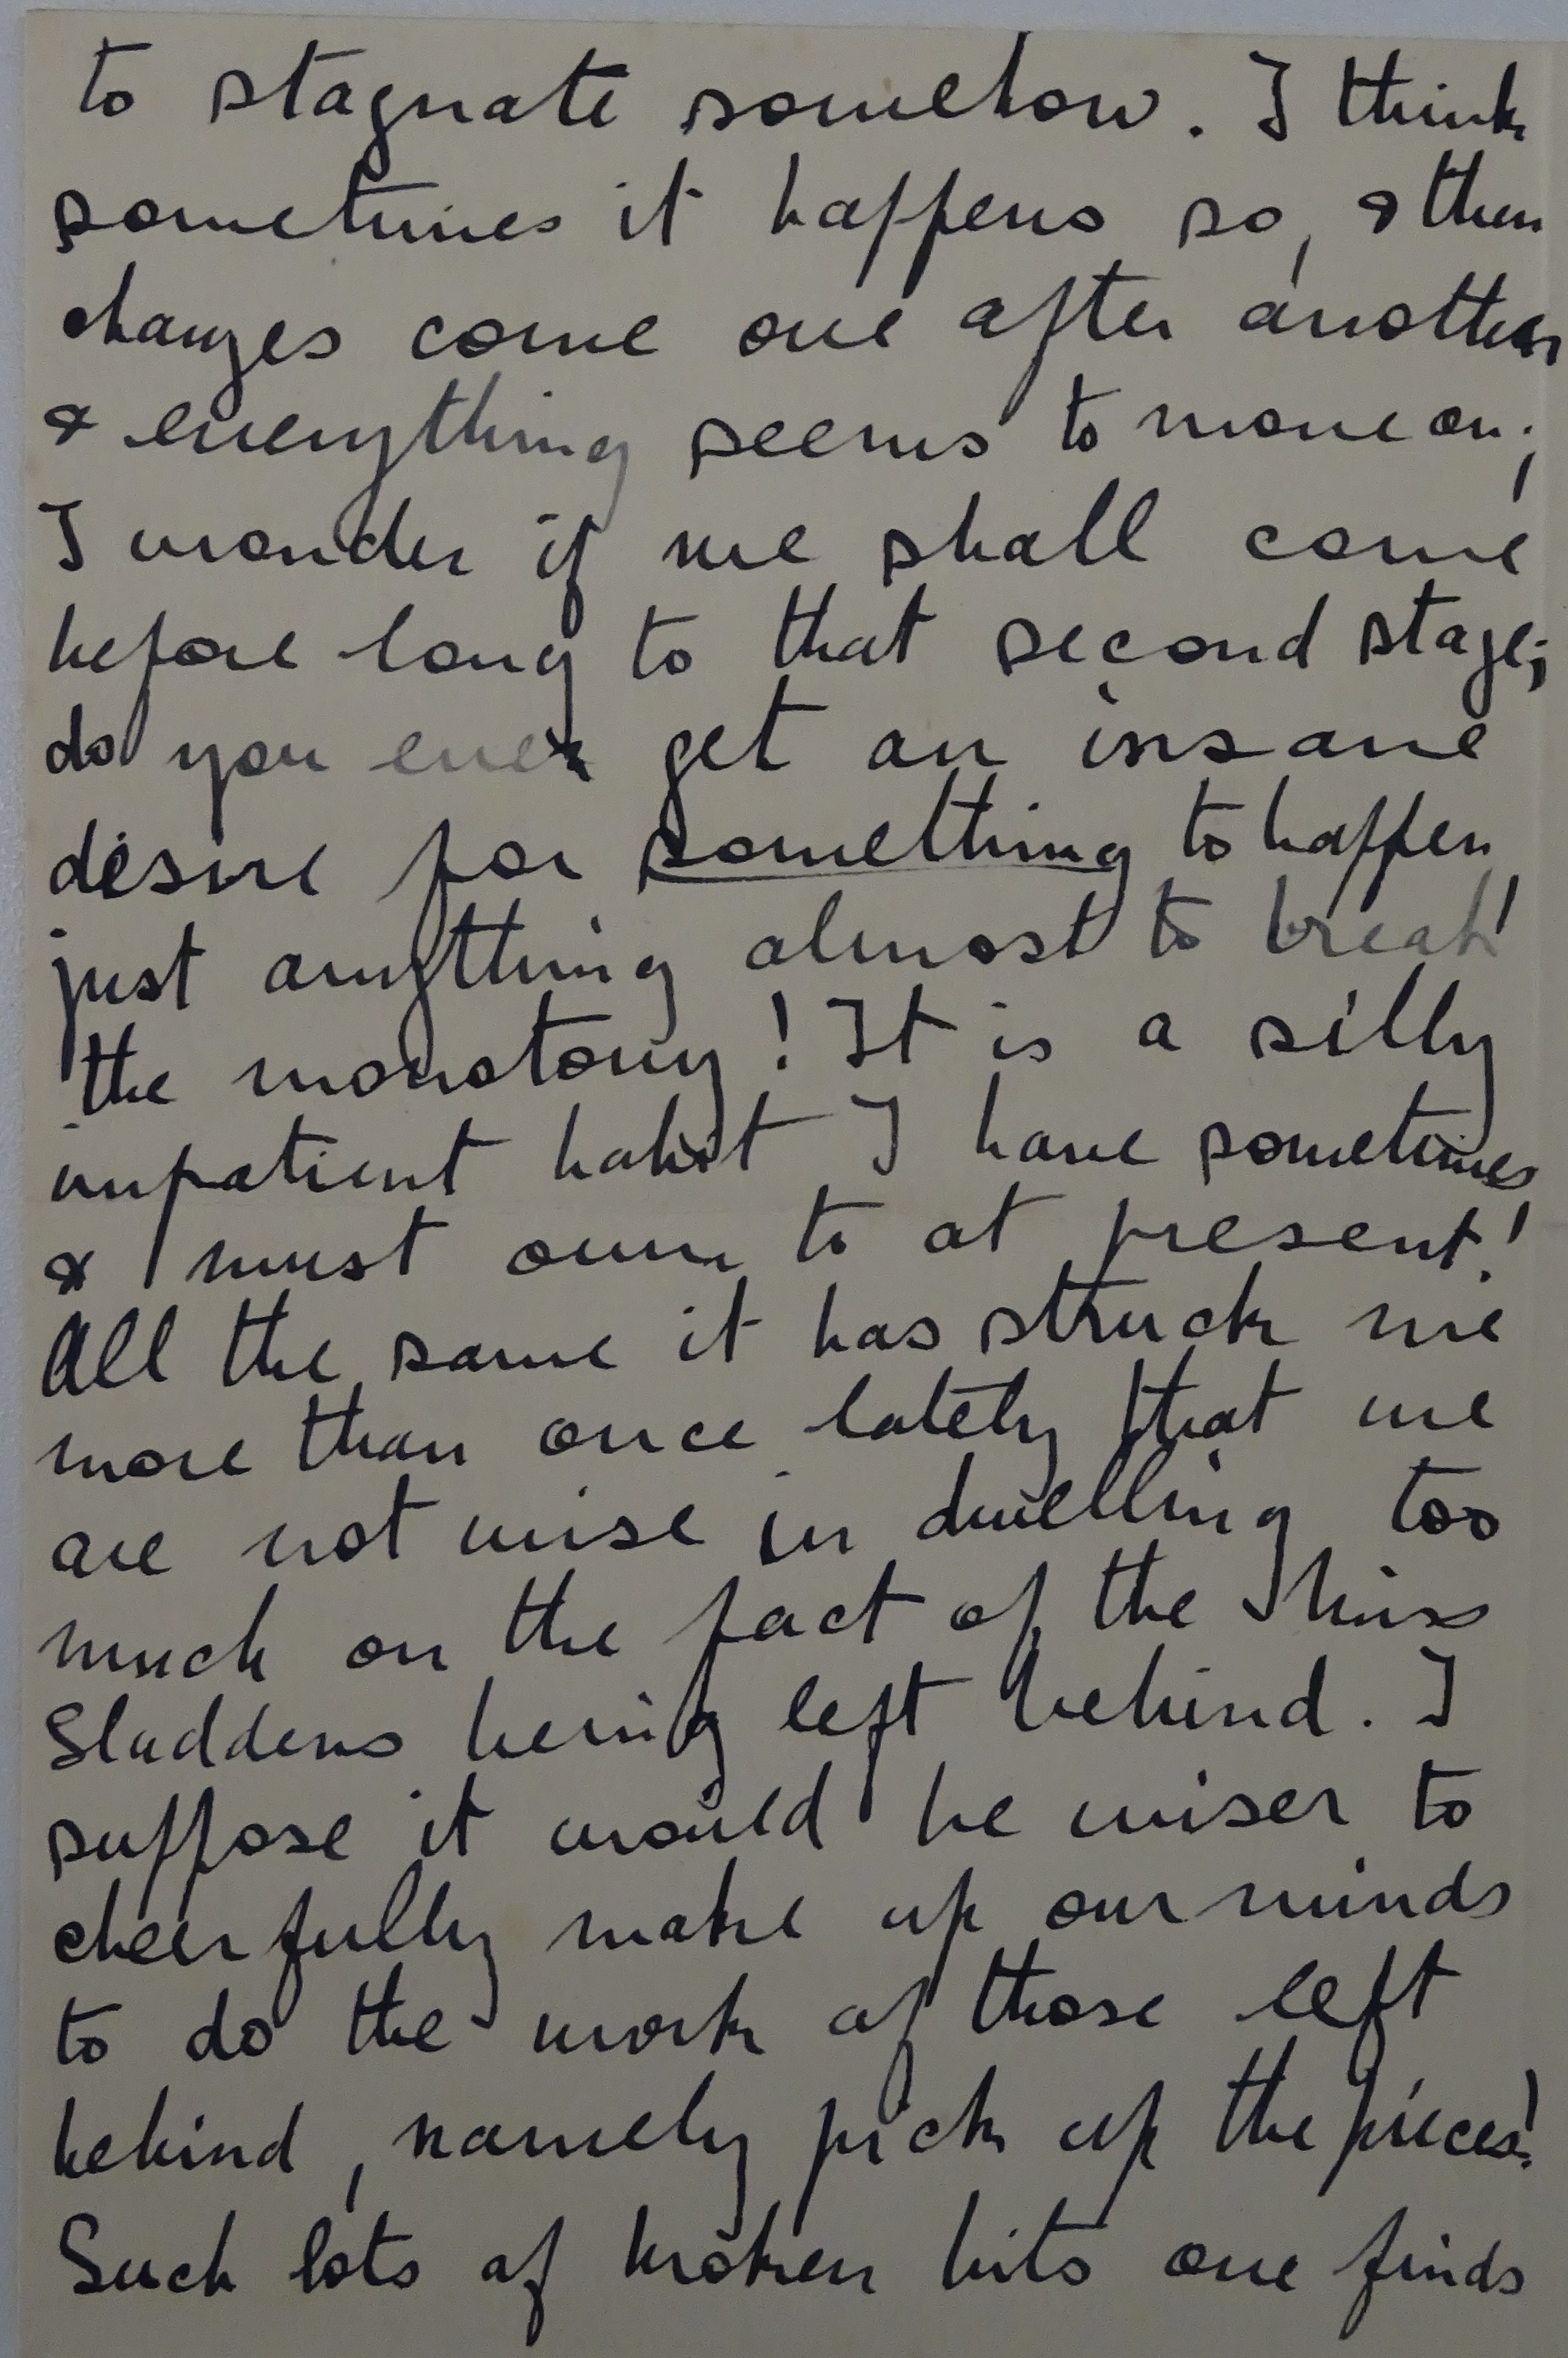 to stagnate somehow. I think
sometimes it happens so, & then
changes come one after another
& everything seems to move on;
I wonder if we shall come
before long to that second stage;
do you ever get an insane
desire for something to happen
just anything almost to break
the monotony! It is a silly
impatient habit I have sometimes
& must own to at present!
All the same it has struck me
more than once lately that we
are not wise in dwelling too
much on the fact of the Miss
Sladdens being left behind. I
suppose it would be wiser to
cheerfully make up our minds
to do the work of those left
behind, namely pick up the pieces!
Such lots of broken bits one finds